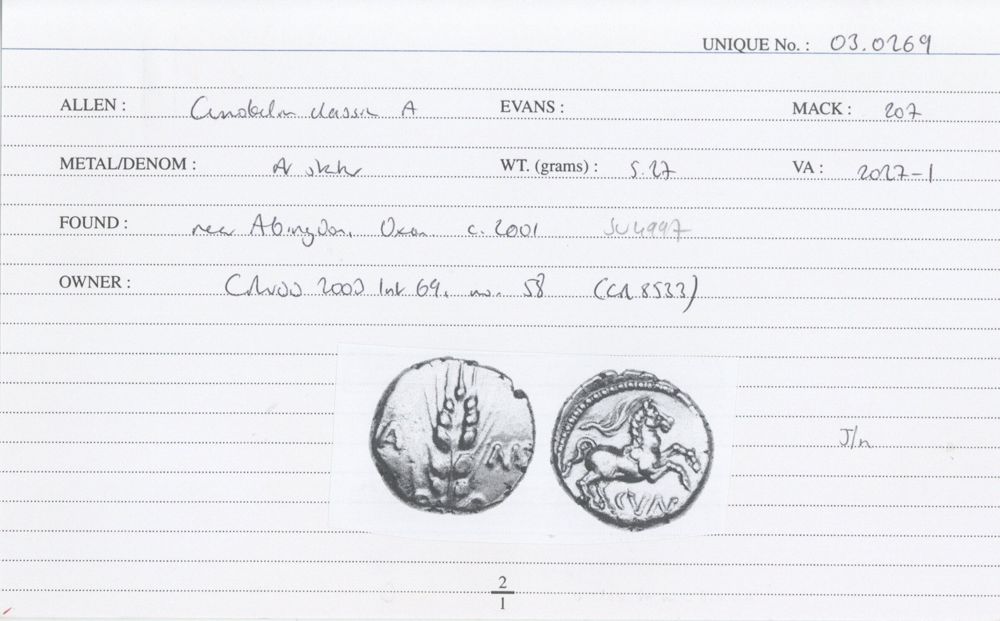 UNIQUE No. : 03.0269
ALLEN : Cunobelin classic A EVANS : MACK : 207
METAL/DENOM : AV stater WT. (grams) : 5.27 VA : 2027-1
FOUND : near Abingdon, Oxon c. 2001 SU4997
OWNER : 2003 List 69, no. 58 (CR 8533)
CVN
2
1